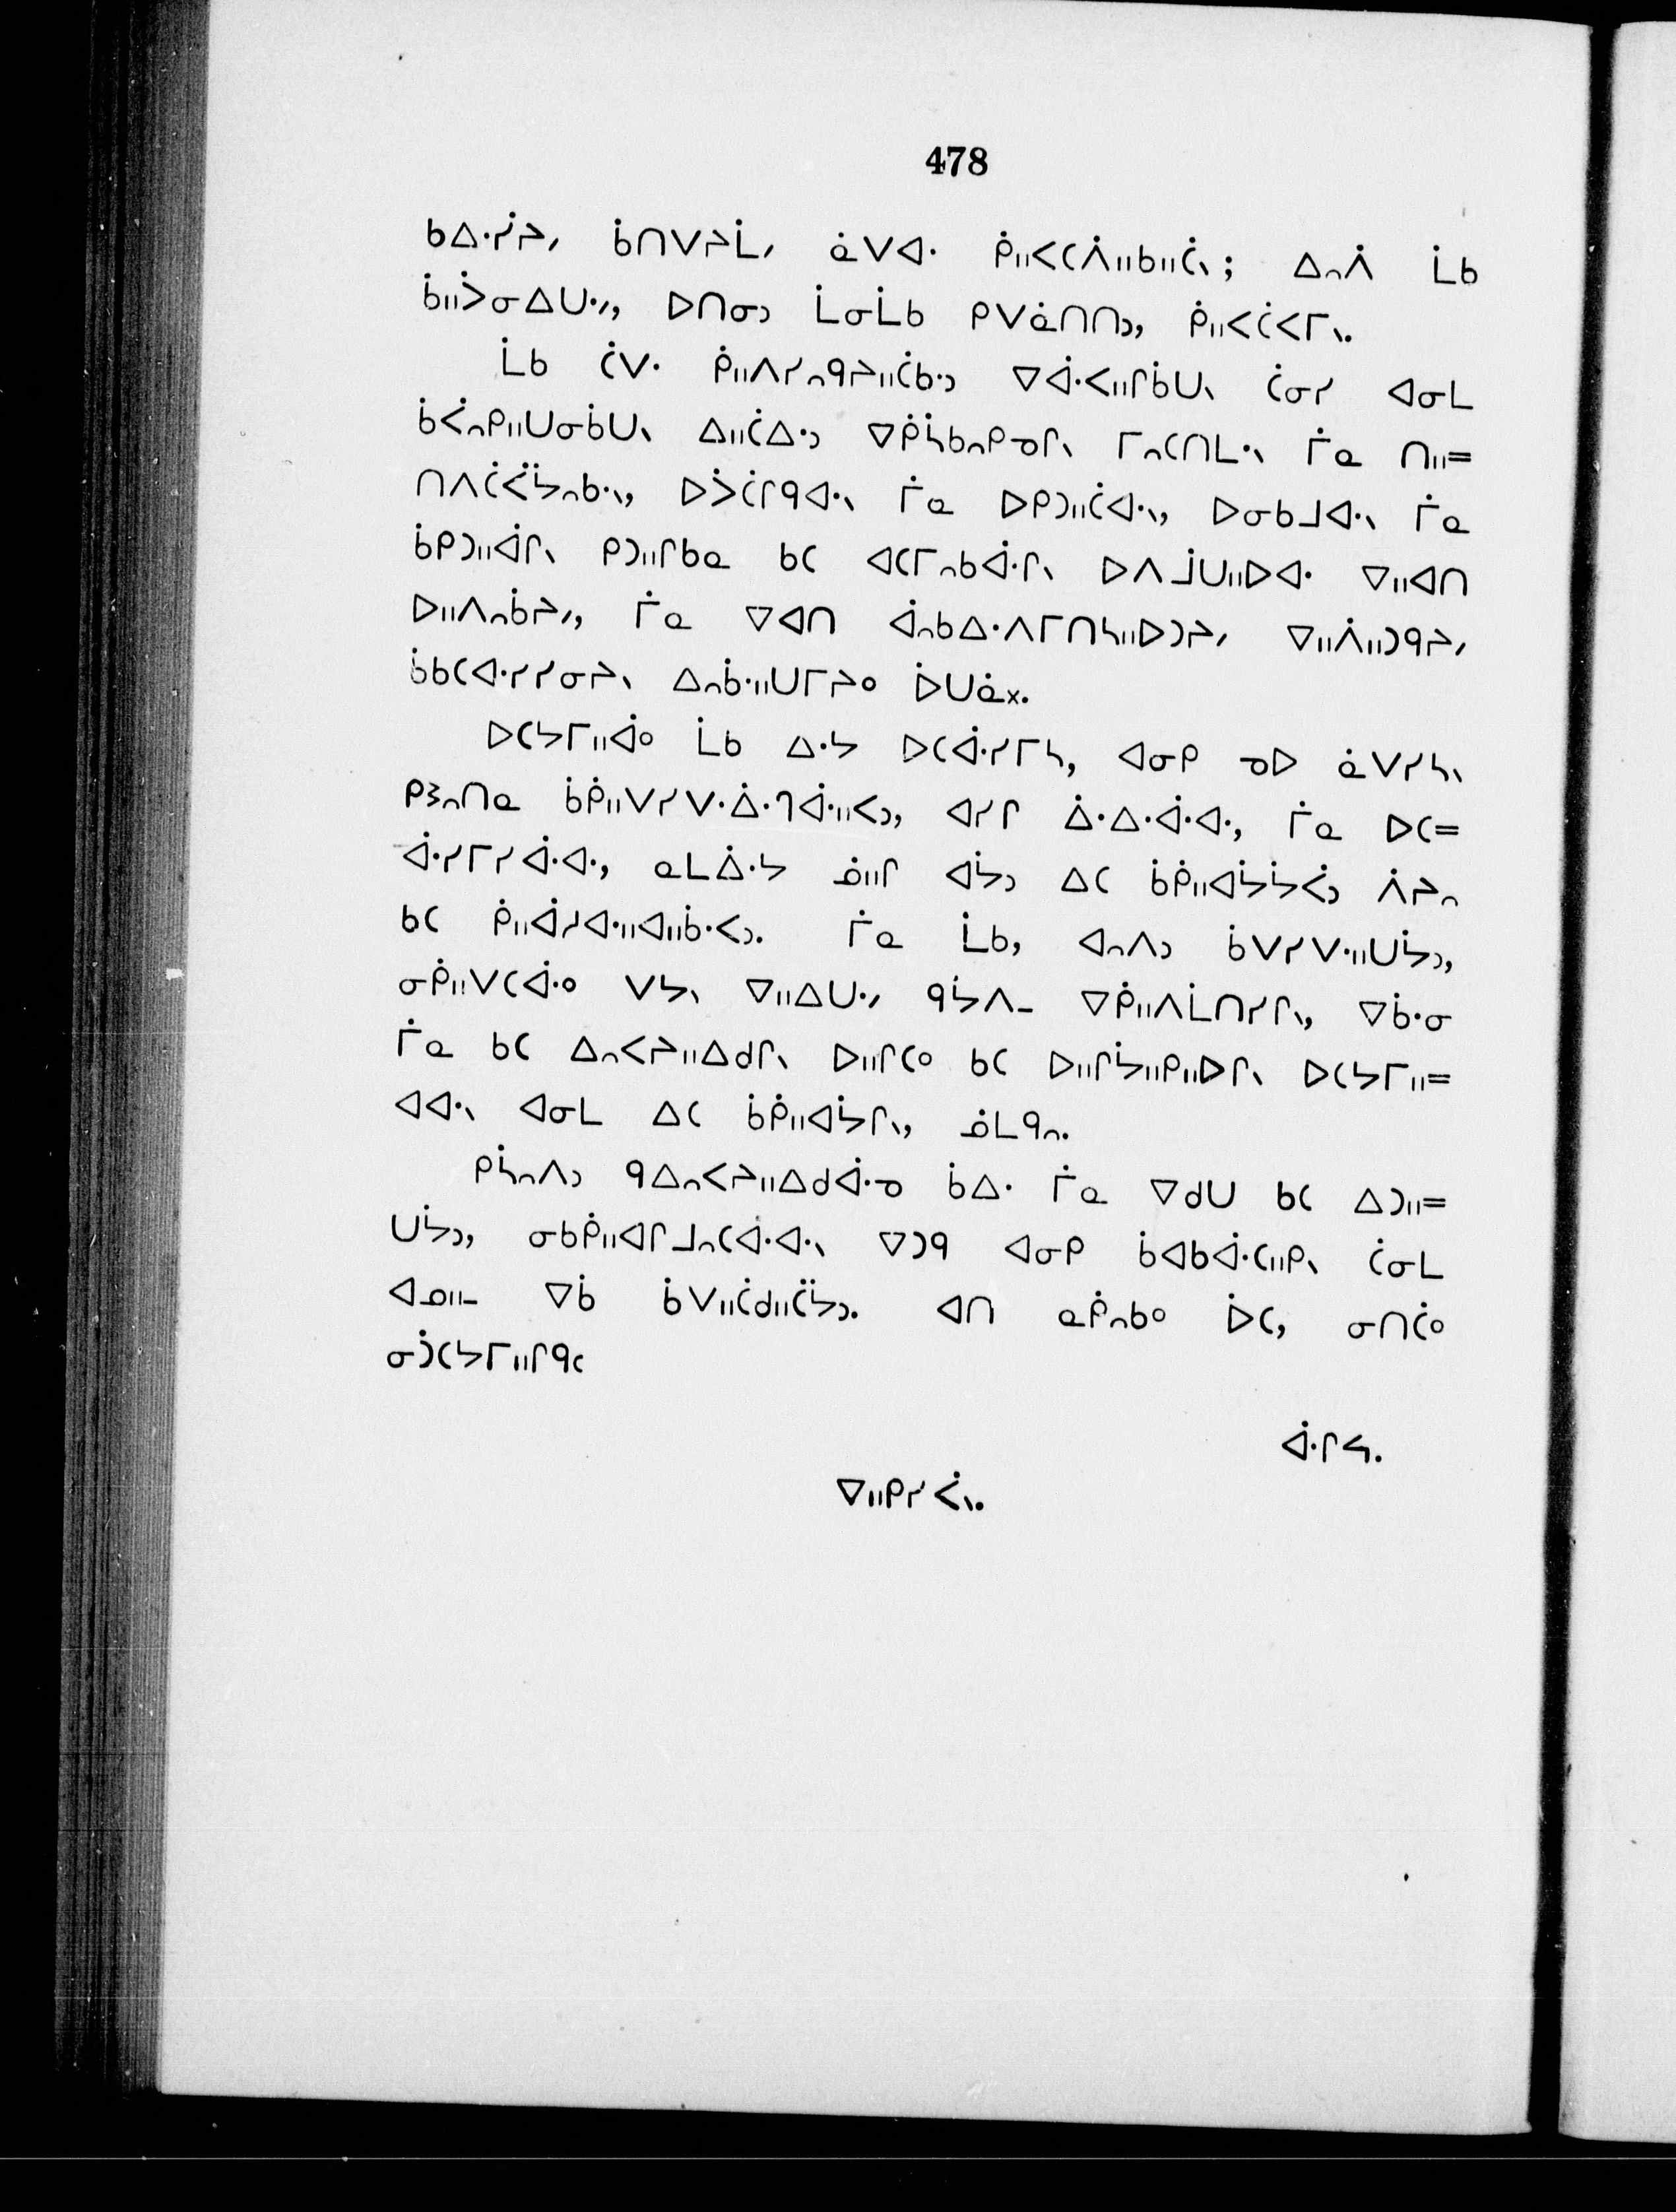 478
ᑲᐃᐧᓰᔨᐟ ᑳᑎᐯᔨᒫᐟ ᓈᐯᐊᐧ ᑮᐦᐸᑕᐲᐦᑲᐦᑖᐠ; ᐃᐢᐲ ᒫᑲ
ᑳᐦᐴᓂᐃᑌᐧᐟ, ᐅᑎᓂᐣ ᒫᓂᒫᑲ ᑭᐯᓈᑎᑎᐣ, ᑮᐦᐸᑖᐸᒥᐠ.
ᒫᑲ ᑖᐯᐧ ᑮᐦᐱᓯᐢᑫᔨᐦᑖᑲᐧᐣ ᐁᐚᐸᐦᒋᑳᑌᐠ ᑖᓂᓯ ᐊᓂᒪ
ᑳᐹᐢᑭᐦᑌᓂᑳᑌᐠ ᐃᐦᑖᐃᐧᐣ ᐁᑮᓵᑲᐢᑭᓀᒋᐠ ᒥᐢᑕᑎᒪᐧᐠ ᒦᓇ ᑎᐦ=
ᑎᐱᑖᐹᔮᐢᑲᐧᐠ, ᐅᐴᑖᒋᑫᐊᐧᐠ ᒦᓇ ᐅᑭᑐᐦᑖᐊᐧᐠ, ᐅᓂᑲᒧᐊᐧᐠ ᒦᓇ
ᑳᑭᑐᐦᐋᒋᐠ ᑭᑐᐦᒋᑲᓇ ᑲᑕ ᐊᑕᒥᐢᑲᐚᒋᐠ ᐅᐱᒨᑌᐦᐅᐊᐧ ᐁᐦᐊᑎ
ᐅᐦᐱᐢᑳᔨᐟ, ᒦᓇ ᐁᐊᑎ ᐋᐢᑲᐃᐧᐱᒥᑎᓴᐦᐅᑐᔨᐟ ᐁᐦᐲᐦᑐᑫᔨᐟ
ᑳᑲᑕᐊᐧᓯᓯᓂᔨᐠ ᐃᐢᑳᐧᐦᑌᒥᔨᐤ ᐆᑌᓈᕽ.
ᐅᑕᔭᒥᐦᐋᐤ ᒫᑲ ᐃᐧᔭ ᐅᑕᐚᓯᒥᓴ, ᐊᓂᑭ ᓀᐅ ᓈᐯᓯᓴᐠ
ᑭᕒᐢᑎᓇ ᑳᑮᐦᐯᓯᐯᐧᐄᐧᒉᐚᐦᐸᐣ, ᐊᓯᒋ ᐄᐧᐃᐧᐚᐊᐧ, ᒦᓇ ᐅᑕ=
ᐚᓯᒥᓯᐚᐊᐧ, ᓇᒪᐄᐧᔭ ᓅᐦᒋ ᐊᔮᐣ ᐃᑕ ᑳᑮᐦᐊᔮᔮᐹᐣ ᐲᔨᐢ
ᑲᑕ ᑮᐦᐋᓱᐊᐧᐦᐊᐦᑳᐧᐸᐣ. ᒦᓇ ᒫᑲ, ᐊᐢᐱᐣ ᑳᐯᓯᐯᐧᐦᑌᔮᐣ,
ᓂᑮᐦᐯᑕᐚᐤ ᐯᔭᐠ ᐁᐦᐃᑌᐧᐟ ᑫᔮᐱᐨ ᐁᑮᐦᐱᒫᑎᓯᒋᐠ, ᐁᑳᐧᓂ
ᒦᓇ ᑲᑕ ᐃᐢᐸᔨᐦᐃᑯᒋᐠ ᐅᐦᒋᑕᐤ ᑲᑕ ᐅᐦᒋᔮᐦᑭᐦᐅᒋᐠ ᐅᑕᔭᒥᐦ=
ᐊᐊᐧᐠ ᐊᓂᒪ ᐃᑕ ᑳᑮᐦᐊᔮᒋᐠ, ᓅᒪᑫᐢ.
ᑭᓵᐢᐱᐣ ᑫᐃᐢᐸᔨᐦᐃᑯᐚᓀ ᑳᐃᐧ ᒦᓇ ᐁᑯᑌ ᑲᑕ ᐃᑐᐦ=
ᑌᔮᐣ, ᓂᑲᑮᐦᐊᒋᒧᐢᑕᐚᐊᐧᐠ ᐁᑐᑫ ᐊᓂᑭ ᑳᐊᑲᐚᑕᐦᑭᐠ ᑖᓂᒪ
ᐊᓄᐦᐨ ᐁᑳ ᑳᐯᐦᑖᑯᐦᑖᔮᐣ. ᐊᑎ ᓇᑮᐢᑲᐤ ᐆᑕ, ᓂᑎᑖᐤ
ᓂᑑᑕᔭᒥᐦᒋᑫᑦ
ᐚᒋᓴ.
ᐁᐦᑭᓯ ᐹᐠ.